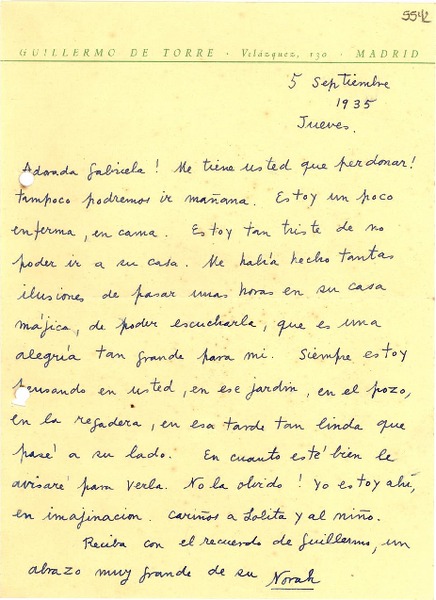 5542
GUILLERMO DE TORRE · Velázquez, 130 · MADRID
5 Septiembre
1935
Jueves.
Adorada Gabriela! Me tiene usted que perdonar!
tampoco podremos ir mañana. Estoy un poco
enferma, en cama. Estoy tan triste de no
poder ir a su casa. Me había hecho tantas
ilusiones de pasar unas horas en su casa
májica, de poder escucharla, que es una
alegría tan grande para mi. Siempre estoy
pensando en usted, en ese jardín, en el pozo,
en la regadera, en esa tarde tan linda que
pasé a su lado. En cuanto esté bien le
avisaré para verla. No la olvido! Yo estoy ahí,
en imajinacion. cariños a Lolita y al niño.
Reciba con el recuerdo de Guillermo, un
abrazo muy grande de su Norah